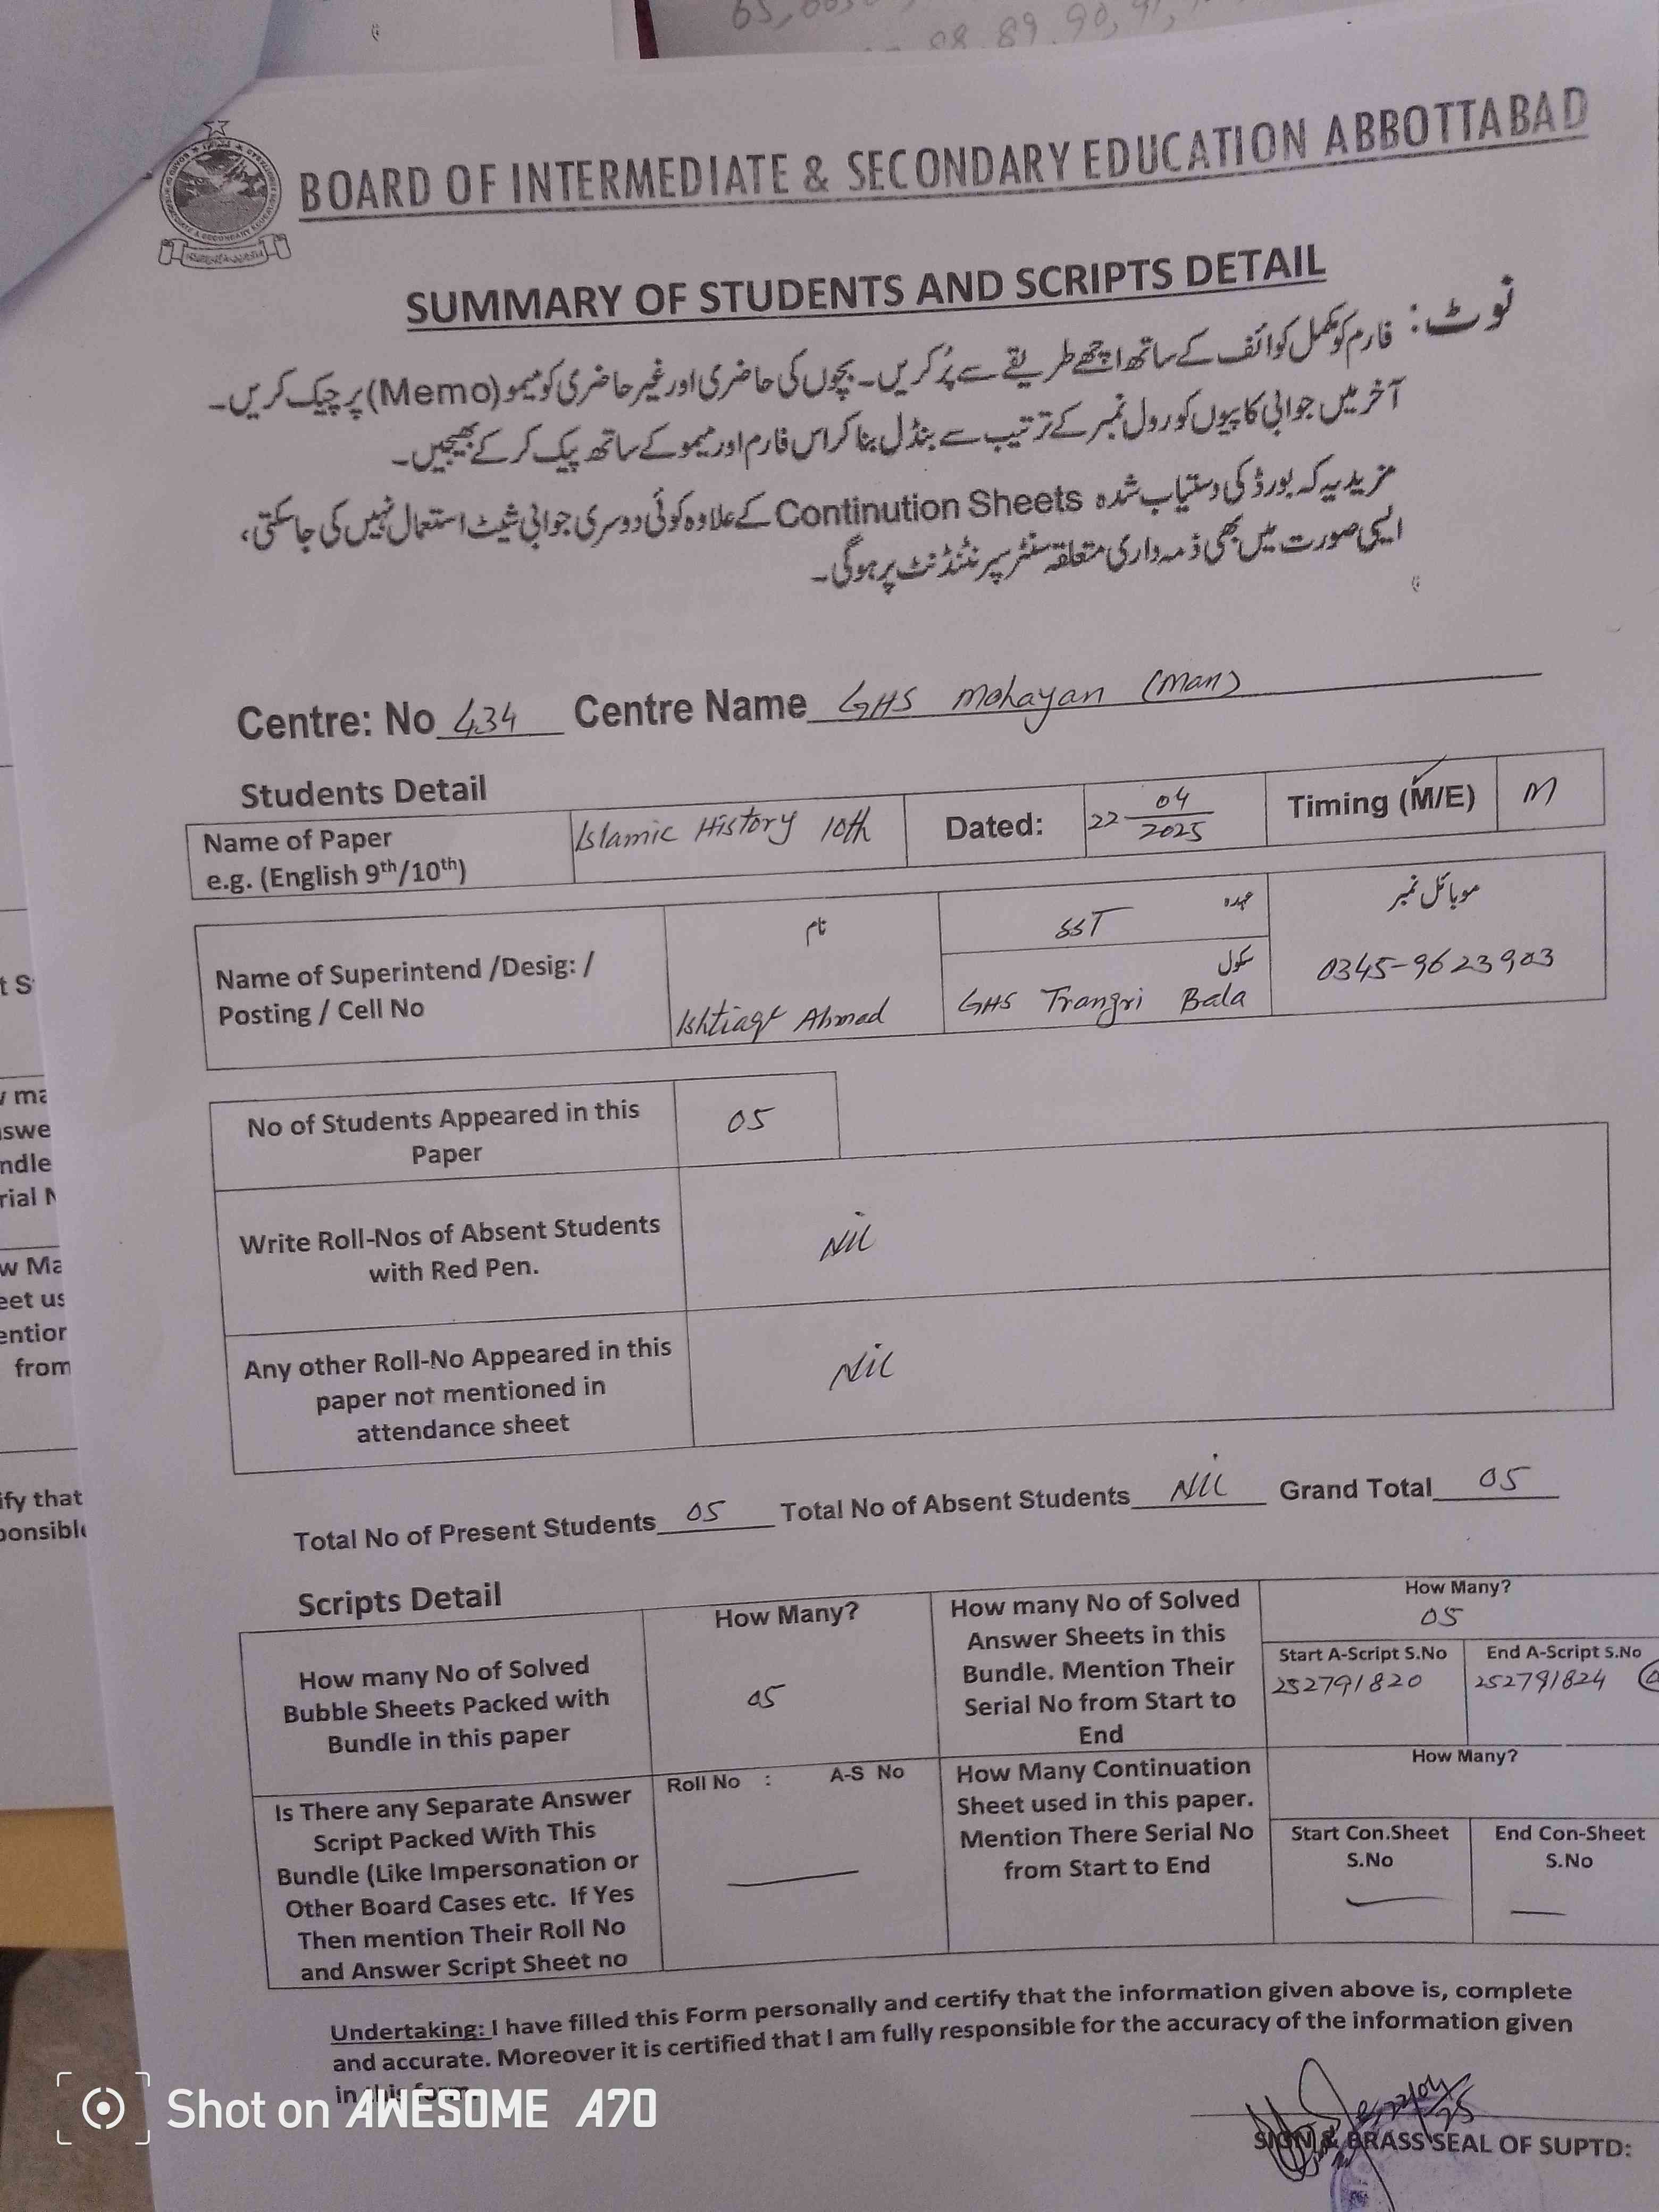 65,
88, 89, 90, 91,
BOARD OF INTERMEDIATE & SECONDARY EDUCATION ABBOTTABAD
SUMMARY OF STUDENTS AND SCRIPTS DETAIL
نوٹ: فارم کو مکمل کوائف کے ساتھ اچھے طریقے سے پُر کریں۔ بچوں کی حاضری اور غیر حاضری کو میمو (Memo) پر چیک کریں۔
آخر میں جوابی کاپیوں کو رول نمبر کے ترتیب سے بنڈل بنا کر اس فارم اور میمو کے ساتھ پیک کر کے بھیجیں۔
مزید یہ کہ بورڈ کی دستیاب شدہ Continution Sheets کے علاوہ کوئی دوسری جوابی شیٹ استعمال نہیں کی جا سکتی،
ایسی صورت میں بھی ذمہ داری متعلقہ سنٹر سپرنٹنڈنٹ پر ہوگی۔
Centre: No 434 Centre Name GHS Mohayan (Man)
Students Detail
Name of Paper
e.g. (English 9th/10th)
Islamic History 10th
Dated:
22 04
2025
Timing (M/E)
M
Name of Superintend /Desig: /
Posting / Cell No
نام
Ishtiaq Ahmad
عہدہ
SST
سکول
GHS Trangri Bala
موبائل نمبر
0345-9623903
No of Students Appeared in this
Paper
05
Write Roll-Nos of Absent Students
with Red Pen.
Nil
Any other Roll-No Appeared in this
paper not mentioned in
attendance sheet
Nil
Total No of Present Students 05 Total No of Absent Students Nil Grand Total 05
Scripts Detail
How many No of Solved
Bubble Sheets Packed with
Bundle in this paper
How Many?
05
How many No of Solved
Answer Sheets in this
Bundle. Mention Their
Serial No from Start to
End
How Many?
05
Start A-Script S.No
252791820
End A-Script S.No
252791824
Is There any Separate Answer
Script Packed With This
Bundle (Like Impersonation or
Other Board Cases etc. If Yes
Then mention Their Roll No
and Answer Script Sheet no
Roll No : A-S No
How Many Continuation
Sheet used in this paper.
Mention There Serial No
from Start to End
How Many?
Start Con.Sheet
S.No
End Con-Sheet
S.No
Undertaking: I have filled this Form personally and certify that the information given above is, complete
and accurate. Moreover it is certified that I am fully responsible for the accuracy of the information given
in this form.
SIGN & BRASS SEAL OF SUPTD:
Shot on AWESOME A70